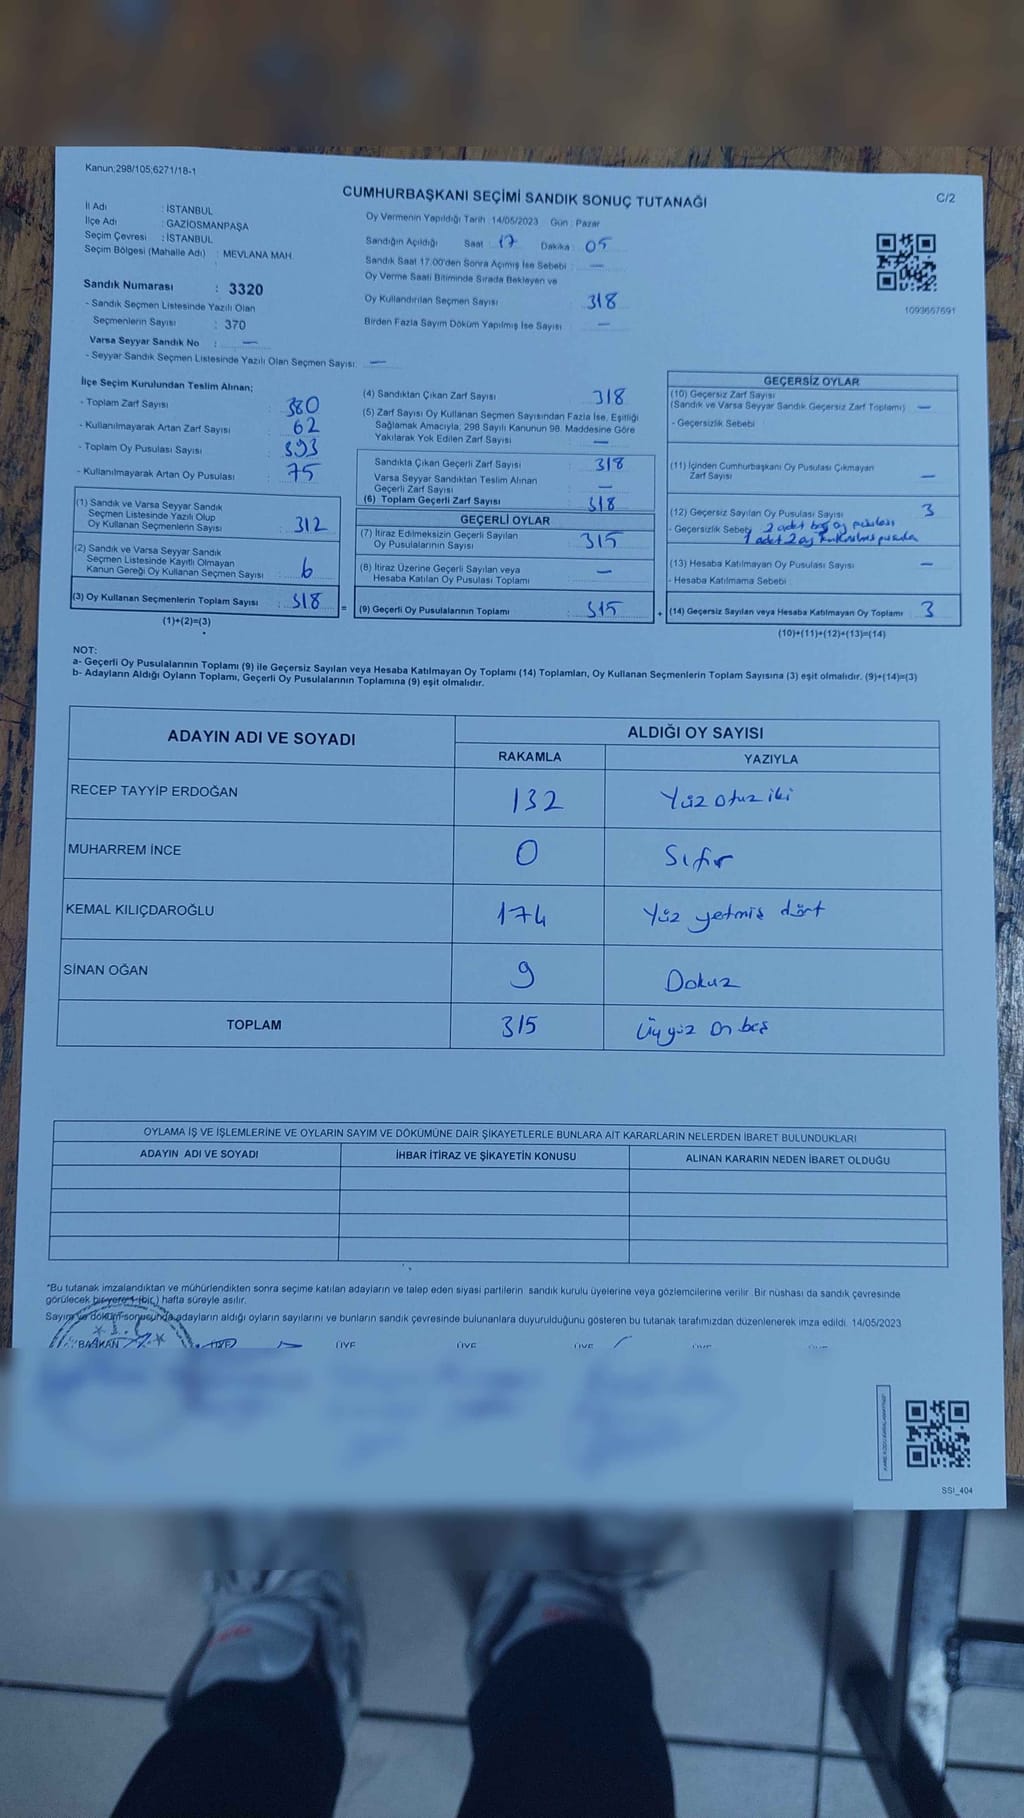 Kanun;298/105;6271/18-1
CUMHURBAŞKANI SEÇİMİ SANDIK SONUÇ TUTANAĞI
C/2
İl Adı : İSTANBUL
İlçe Adı : GAZİOSMANPAŞA
Seçim Çevresi : İSTANBUL
Seçim Bölgesi (Mahalle Adı) : MEVLANA MAH.
Sandık Numarası : 3320
- Sandık Seçmen Listesinde Yazılı Olan
Seçmenlerin Sayısı : 370
Varsa Seyyar Sandık No : —
- Seyyar Sandık Seçmen Listesinde Yazılı Olan Seçmen Sayısı: —
Oy Vermenin Yapıldığı Tarih :14/05/2023 Gün : Pazar
Sandığın Açıldığı Saat : 17 Dakika : 05
Sandık Saat 17.00'den Sonra Açımış İse Sebebi : —
Oy Verme Saati Bitiminde Sırada Bekleyen ve
Oy Kullandırılan Seçmen Sayısı : 318
Birden Fazla Sayım Döküm Yapılmış İse Sayısı : —
1093657691
İlçe Seçim Kurulundan Teslim Alınan;
- Toplam Zarf Sayısı : 380
- Kullanılmayarak Artan Zarf Sayısı : 62
- Toplam Oy Pusulası Sayısı : 393
- Kullanılmayarak Artan Oy Pusulası : 75
(1) Sandık ve Varsa Seyyar Sandık
Seçmen Listesinde Yazılı Olup
Oy Kullanan Seçmenlerin Sayısı : 312
(2) Sandık ve Varsa Seyyar Sandık
Seçmen Listesinde Kayıtlı Olmayan
Kanun Gereği Oy Kullanan Seçmen Sayısı : 6
(3) Oy Kullanan Seçmenlerin Toplam Sayısı : 318
(1)+(2)=(3)
(4) Sandıktan Çıkan Zarf Sayısı : 318
(5) Zarf Sayısı Oy Kullanan Seçmen Sayısından Fazla İse, Eşitliği
Sağlamak Amacıyla, 298 Sayılı Kanunun 98. Maddesine Göre
Yakılarak Yok Edilen Zarf Sayısı : —
Sandıkta Çıkan Geçerli Zarf Sayısı : 318
Varsa Seyyar Sandıktan Teslim Alınan
Geçerli Zarf Sayısı : —
(6) Toplam Geçerli Zarf Sayısı : 318
GEÇERLİ OYLAR
(7) İtiraz Edilmeksizin Geçerli Sayılan
Oy Pusulalarının Sayısı : 315
(8) İtiraz Üzerine Geçerli Sayılan veya
Hesaba Katılan Oy Pusulası Toplamı : —
= (9) Geçerli Oy Pusulalarının Toplamı : 315
GEÇERSİZ OYLAR
(10) Geçersiz Zarf Sayısı
(Sandık ve Varsa Seyyar Sandık Geçersiz Zarf Toplamı) : —
- Geçersizlik Sebebi :
(11) İçinden Cumhurbaşkanı Oy Pusulası Çıkmayan
Zarf Sayısı : —
(12) Geçersiz Sayılan Oy Pusulası Sayısı : 3
- Geçersizlik Sebebi : 2 adet boş oy pusulası
1 adet 2 oy kullanılmış pusula
(13) Hesaba Katılmayan Oy Pusulası Sayısı : —
- Hesaba Katılmama Sebebi :
+ (14) Geçersiz Sayılan veya Hesaba Katılmayan Oy Toplamı : 3
(10)+(11)+(12)+(13)=(14)
NOT:
a- Geçerli Oy Pusulalarının Toplamı (9) ile Geçersiz Sayılan veya Hesaba Katılmayan Oy Toplamı (14) Toplamları, Oy Kullanan Seçmenlerin Toplam Sayısına (3) eşit olmalıdır. (9)+(14)=(3)
b- Adayların Aldığı Oyların Toplamı, Geçerli Oy Pusulalarının Toplamına (9) eşit olmalıdır.
ADAYIN ADI VE SOYADI
ALDIĞI OY SAYISI
RAKAMLA YAZIYLA
RECEP TAYYİP ERDOĞAN 132 Yüz otuz iki
MUHARREM İNCE 0 Sıfır
KEMAL KILIÇDAROĞLU 174 Yüz yetmiş dört
SİNAN OĞAN 9 Dokuz
TOPLAM 315 Üçyüz On beş
OYLAMA İŞ VE İŞLEMLERİNE VE OYLARIN SAYIM VE DÖKÜMÜNE DAİR ŞİKAYETLERLE BUNLARA AİT KARARLARIN NELERDEN İBARET BULUNDUKLARI
ADAYIN ADI VE SOYADI İHBAR İTİRAZ VE ŞİKAYETİN KONUSU ALINAN KARARIN NEDEN İBARET OLDUĞU
*Bu tutanak imzalandıktan ve mühürlendikten sonra seçime katılan adayların ve talep eden siyasi partilerin sandık kurulu üyelerine veya gözlemcilerine verilir. Bir nüshası da sandık çevresinde
görülecek bir yere 1 (bir) hafta süreyle asılır.
Sayım ve döküm sonucunda adayların aldığı oyların sayılarını ve bunların sandık çevresinde bulunanlara duyurulduğunu gösteren bu tutanak tarafımızdan düzenlenerek imza edildi. 14/05/2023
BAŞKAN ÜYE ÜYE ÜYE ÜYE
SSI_404